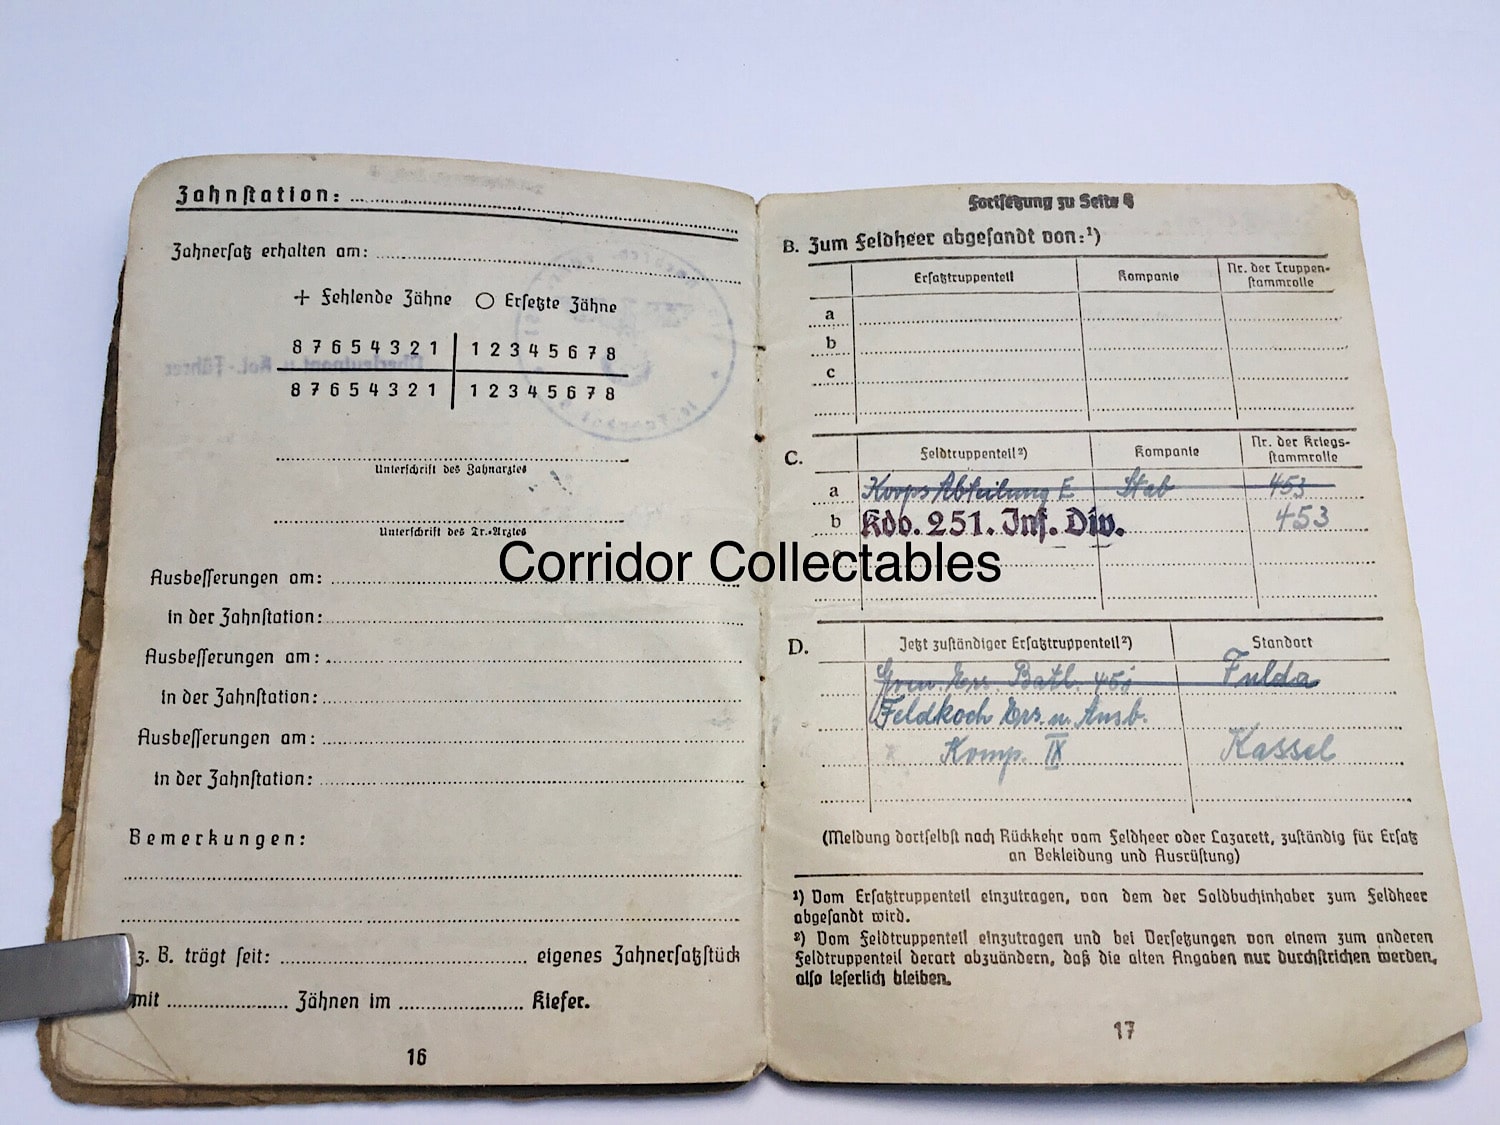 Zahnstation:
Zahnersatz erhalten am:
+ Fehlende Zähne ○ Ersetzte Zähne
8 7 6 5 4 3 2 1 | 1 2 3 4 5 6 7 8
8 7 6 5 4 3 2 1 | 1 2 3 4 5 6 7 8
Unterschrift des Zahnarztes
Unterschrift des Tr.-Arztes
Ausbesserungen am:
in der Zahnstation:
Ausbesserungen am:
in der Zahnstation:
Ausbesserungen am:
in der Zahnstation:
Bemerkungen:
z. B. trägt seit: eigenes Zahnersatzstück
mit Zähnen im Kiefer.
16
Fortsetzung zu Seite 4
B. Zum Feldheer abgesandt von:¹)
Ersatztruppenteil Kompanie Nr. der Truppen-
stammrolle
a
b
c
C. Feldtruppenteil²) Kompanie Nr. der Kriegs-
stammrolle
a Korps Abteilung E Stab 453
b Kdo. 251. Inf. Div. 453
c
D. Jetzt zuständiger Ersatztruppenteil²) Standort
Gren. Ers. Batl. Fulda
Feldkoch Ers. u. Ausb.
Komp. IX Kassel
(Meldung dortselbst nach Rückkehr vom Feldheer oder Lazarett, zuständig für Ersatz
an Bekleidung und Ausrüstung)
¹) Vom Ersatztruppenteil einzutragen, von dem der Soldbuchinhaber zum Feldheer
abgesandt wird.
²) Vom Feldtruppenteil einzutragen und bei Versetzungen von einem zum anderen
Feldtruppenteil derart abzuändern, daß die alten Angaben nur durchstrichen werden,
also leserlich bleiben.
17
Corridor Collectables